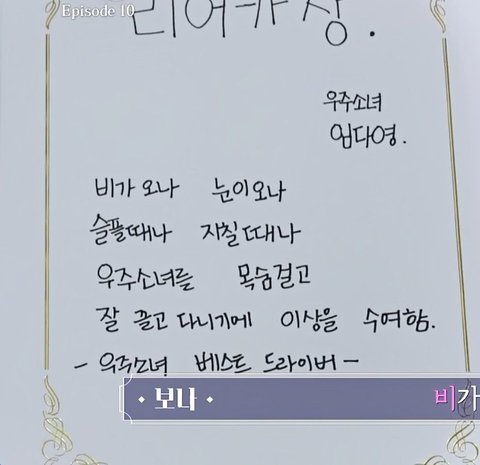 Episode 10
리어카 상.
우주소녀
임다영.
비가 오나 눈이오나
슬플때나 지칠때나
우주소녀를 목숨걸고
잘 끌고 다니기에 이상을 수여함.
- 우주소녀 베스트 드라이버 -
• 보나 • 비가